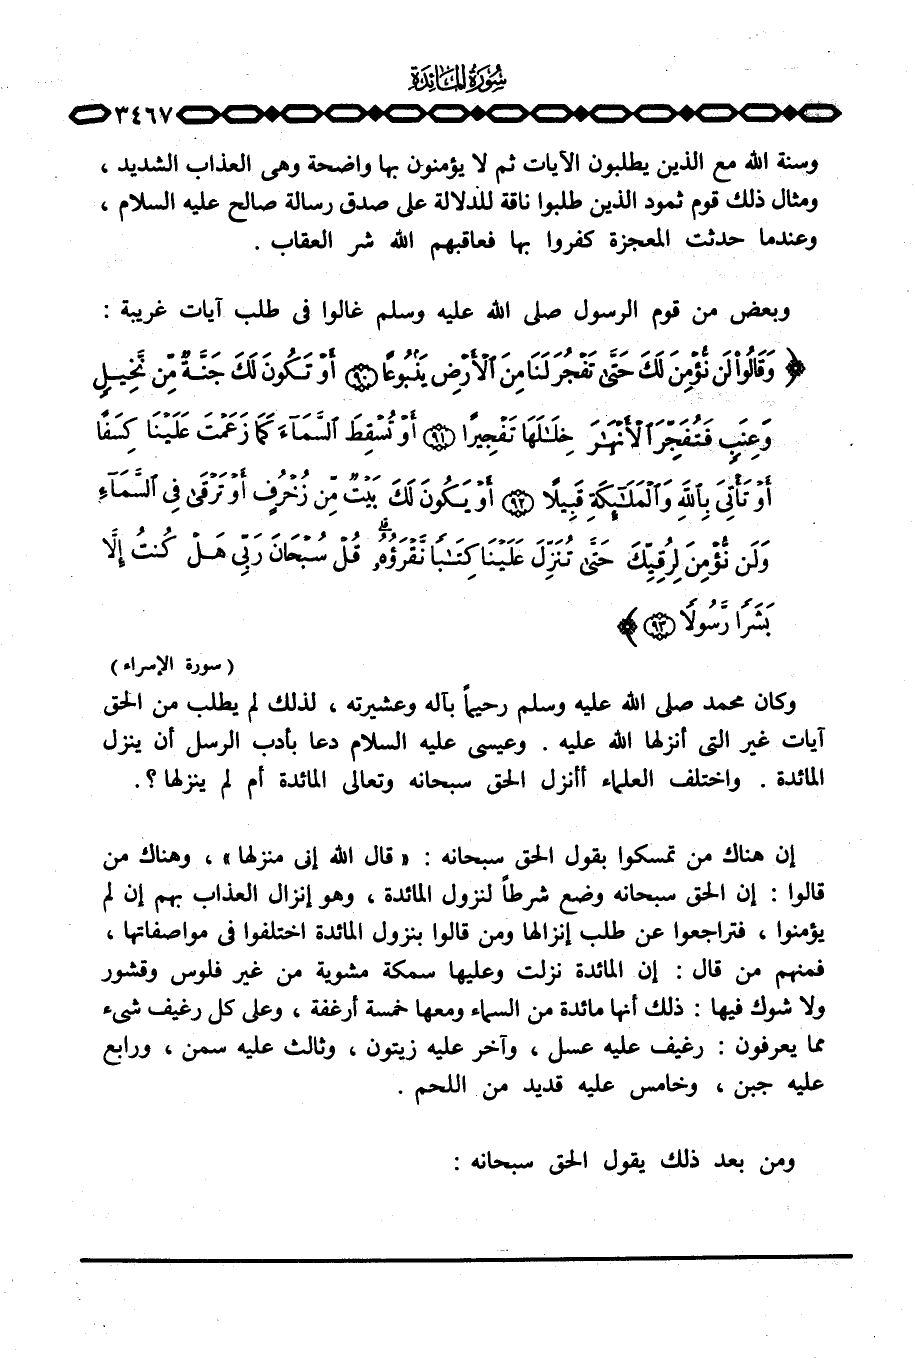 سُورَةُ المَائِدَة
٣٤٦٧
وسنة الله مع الذين يطلبون الآيات ثم لا يؤمنون بها واضحة وهى العذاب الشديد ،
ومثال ذلك قوم ثمود الذين طلبوا ناقة للدلالة على صدق رسالة صالح عليه السلام ،
وعندما حدثت المعجزة كفروا بها فعاقبهم الله شر العقاب .
وبعض من قوم الرسول صلى الله عليه وسلم غالوا فى طلب آيات غريبة :
﴿ وَقَالُوا۟ لَن نُّؤْمِنَ لَكَ حَتَّىٰ تَفْجُرَ لَنَا مِنَ ٱلْأَرْضِ يَنۢبُوعًا ﴿٩٠﴾ أَوْ تَكُونَ لَكَ جَنَّةٌ مِّن نَّخِيلٍ
وَعِنَبٍ فَتُفَجِّرَ ٱلْأَنْهَٰرَ خِلَٰلَهَا تَفْجِيرًا ﴿٩١﴾ أَوْ تُسْقِطَ ٱلسَّمَآءَ كَمَا زَعَمْتَ عَلَيْنَا كِسَفًا
أَوْ تَأْتِىَ بِٱللَّهِ وَٱلْمَلَٰٓئِكَةِ قَبِيلًا ﴿٩٢﴾ أَوْ يَكُونَ لَكَ بَيْتٌ مِّن زُخْرُفٍ أَوْ تَرْقَىٰ فِى ٱلسَّمَآءِ
وَلَن نُّؤْمِنَ لِرُقِيِّكَ حَتَّىٰ تُنَزِّلَ عَلَيْنَا كِتَٰبًا نَّقْرَؤُهُۥ ۗ قُلْ سُبْحَانَ رَبِّى هَلْ كُنتُ إِلَّا
بَشَرًا رَّسُولًا ﴿٩٣﴾ ﴾
( سورة الإسراء )
وكان محمد صلى الله عليه وسلم رحيماً بآله وعشيرته ، لذلك لم يطلب من الحق
آيات غير التى أنزلها الله عليه . وعيسى عليه السلام دعا بأدب الرسل أن ينزل
المائدة . واختلف العلماء أأنزل الحق سبحانه وتعالى المائدة أم لم ينزلها ؟ .
إن هناك من تمسكوا بقول الحق سبحانه : « قال الله إنى منزلها » ، وهناك من
قالوا : إن الحق سبحانه وضع شرطاً لنزول المائدة ، وهو إنزال العذاب بهم إن لم
يؤمنوا ، فتراجعوا عن طلب إنزالها ومن قالوا بنزول المائدة اختلفوا فى مواصفاتها ،
فمنهم من قال : إن المائدة نزلت وعليها سمكة مشوية من غير فلوس وقشور
ولا شوك فيها : ذلك أنها مائدة من السماء ومعها خمسة أرغفة ، وعلى كل رغيف شىء
مما يعرفون : رغيف عليه عسل ، وآخر عليه زيتون ، وثالث عليه سمن ، ورابع
عليه جبن ، وخامس عليه قديد من اللحم .
ومن بعد ذلك يقول الحق سبحانه :